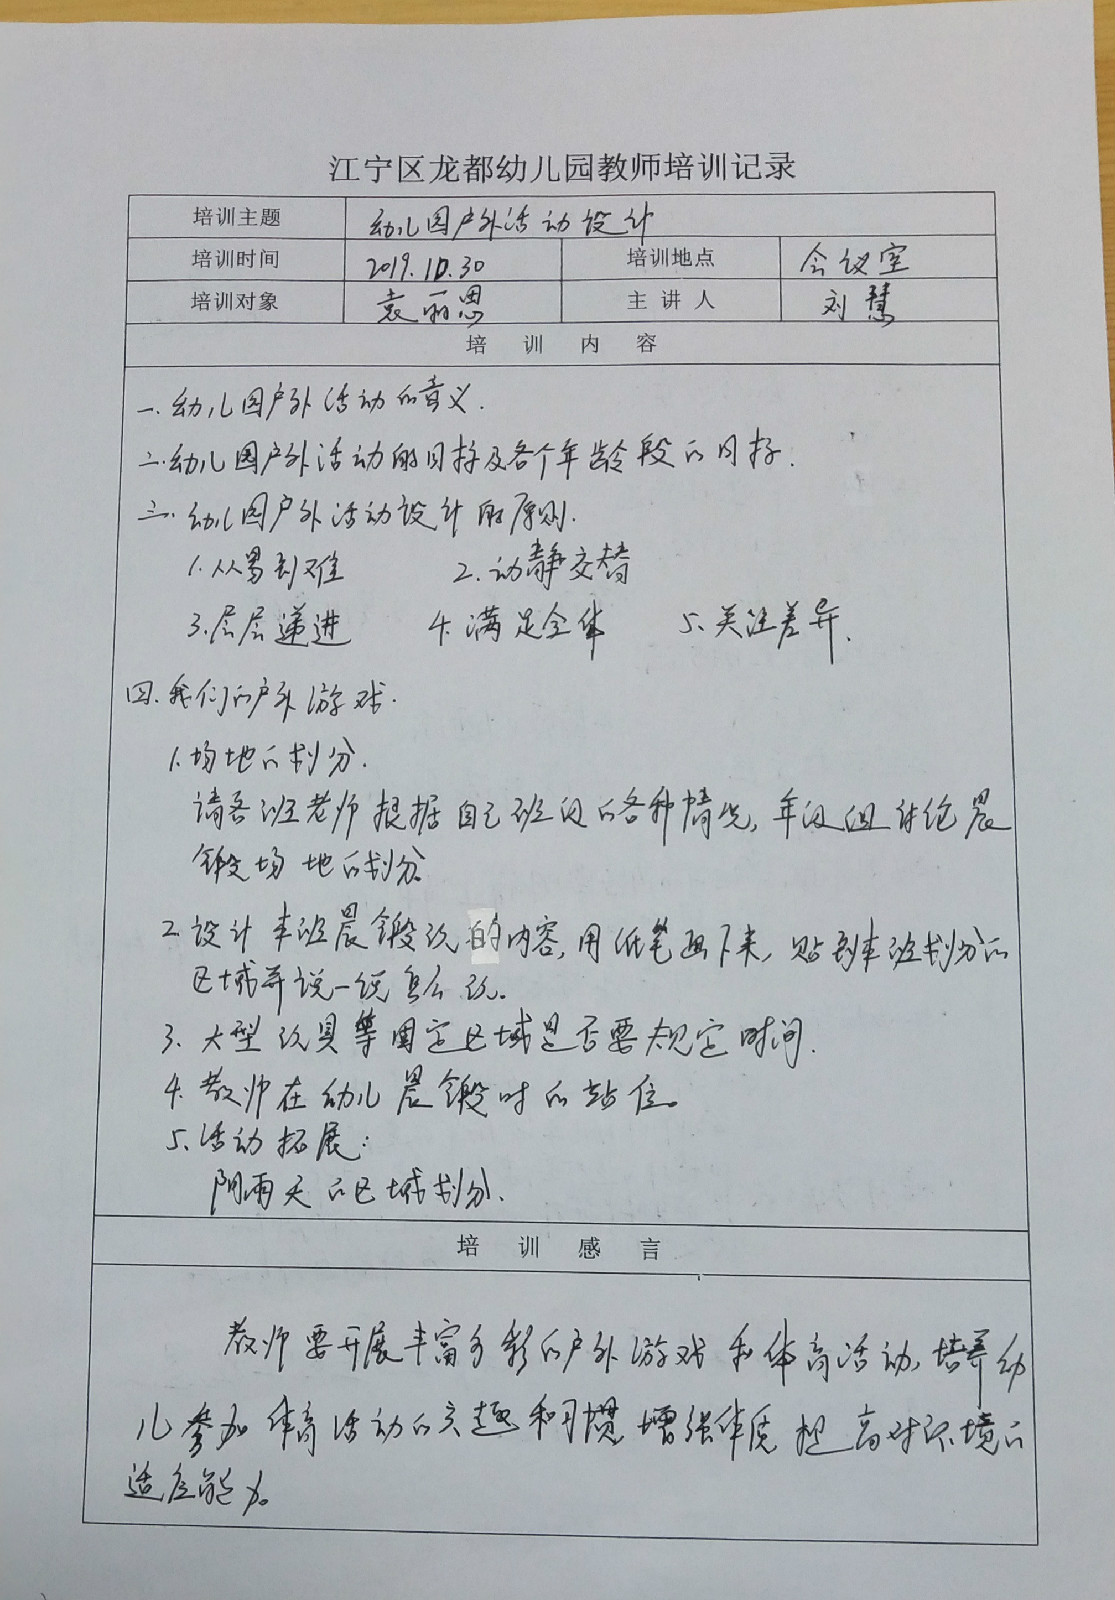 江宁区龙都幼儿园教师培训记录
培训主题 幼儿园户外活动设计
培训时间 2019.10.30 培训地点 会议室
培训对象 袁丽思 主讲人 刘慧
培训内容
一.幼儿园户外活动的意义.
二.幼儿园户外活动的目标及各个年龄段的目标.
三.幼儿园户外活动设计的原则.
1.从易到难 2.动静交替
3.层层递进 4.满足全体 5.关注差异.
四.我们的户外游戏.
1.场地的划分.
请各班老师根据自己班级的各种情况,年级组讨论晨
锻场地的划分.
2.设计本班晨锻玩的内容,用纸笔画下来,贴到本班划分的
区域并说一说怎么玩。
3.大型玩具等固定区域是否要规定时间.
4.教师在幼儿晨锻时的站位。
5.活动拓展:
阴雨天的区域划分.
培训感言
教师要开展丰富多彩的户外游戏和体育活动,培养幼
儿参加体育活动的兴趣和习惯增强体质提高对环境的
适应能力。